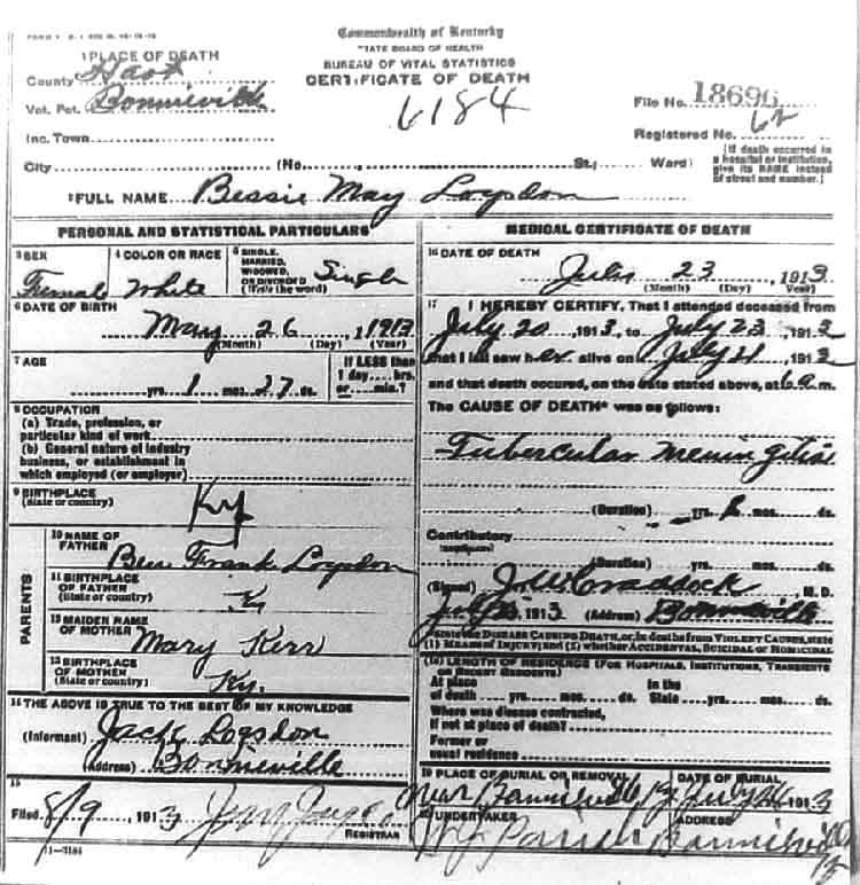 Commonwealth of Kentucky
STATE BOARD OF HEALTH
BUREAU OF VITAL STATISTICS
CERTIFICATE OF DEATH
6184
1 PLACE OF DEATH
County Hart
Vot. Pct. Bonnieville
Inc. Town
City (No. St.; Ward)
File No. 18696
Registered No. 62
(If death occurred in
a hospital or institution,
give its NAME instead
of street and number.)
2 FULL NAME Bessie May Logsdon
PERSONAL AND STATISTICAL PARTICULARS
3 SEX
Female
4 COLOR OR RACE
White
5 SINGLE,
MARRIED,
WIDOWED,
OR DIVORCED
(Write the word)
Single
6 DATE OF BIRTH
May 26, 1913
(Month) (Day) (Year)
7 AGE
yrs. 1 mos. 27 ds.
If LESS than
1 day.... hrs.
or.... min.?
8 OCCUPATION
(a) Trade, profession, or
particular kind of work
(b) General nature of industry
business, or establishment in
which employed (or employer)
9 BIRTHPLACE
(State or country)
Ky
PARENTS
10 NAME OF
FATHER
Ben Frank Logsdon
11 BIRTHPLACE
OF FATHER
(State or country)
Ky
12 MAIDEN NAME
OF MOTHER
Mary Kerr
13 BIRTHPLACE
OF MOTHER
(State or country)
Ky.
14 THE ABOVE IS TRUE TO THE BEST OF MY KNOWLEDGE
(Informant) Jack Logsdon
(Address) Bonnieville
15
Filed 8/9, 1913
REGISTRAR
11-3184
MEDICAL CERTIFICATE OF DEATH
16 DATE OF DEATH
July 23, 1913
(Month) (Day) Year)
17 I HEREBY CERTIFY, That I attended deceased from
July 20, 1913, to July 23, 1913
that I last saw her alive on July 21, 1913
and that death occured, on the date stated above, at 6 a.m.
The CAUSE OF DEATH* was as follows:
Tubercular meningitis
(Duration) yrs. mos. ds.
Contributory
(Duration) yrs. mos. ds.
(Signed) J. W. Craddock, M. D.
July, 1913 (Address) Bonnieville
*State the DISEASE CAUSING DEATH, or, in deaths from VIOLENT CAUSES, state
(1) MEANS OF INJURY; and (2) whether ACCIDENTAL, SUICIDAL or HOMICIDAL
(18) LENGTH OF RESIDENCE (FOR HOSPITALS, INSTITUTIONS, TRANSIENTS
OR RECENT RESIDENTS)
At place In the
of death.... yrs.... mos.... ds. State.... yrs.... mos.... ds.
Where was disease contracted,
if not at place of death?
Former or
usual residence
19 PLACE OF BURIAL OR REMOVAL
Near Bonnieville Ky
DATE OF BURIAL
July 24 1913
20 UNDERTAKER
Parish
ADDRESS
Bonnieville